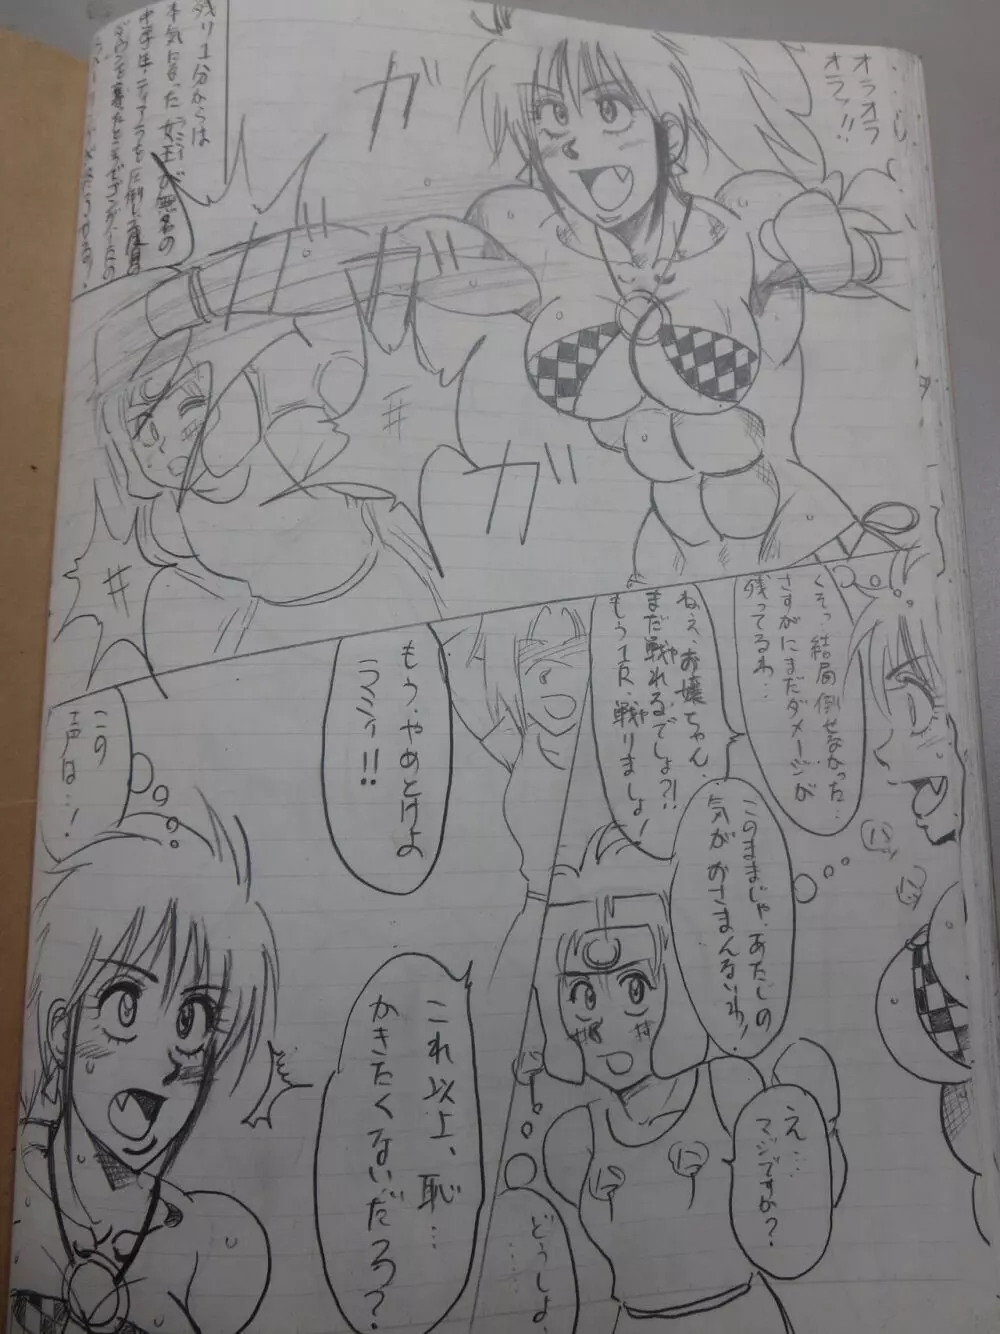 オラオラ
オラッ!!
ガ
ガ
ガ
残り1分からは
本気になった女王が無名の
もう、やめとけよ
ラミィ!!
この
声は…!
くそっ、結局倒せなかった…
さすがにまだダメージが
残ってるわ…
ねぇ、お嬢ちゃん、
まだ戦れるでしょ?!
もう1R、戦りましょ!
このままじゃ、あたしの
気がおさまんないわ!
え……
マジですか?
どうしよ
……
これ以上、恥…
かきたくないだろ?